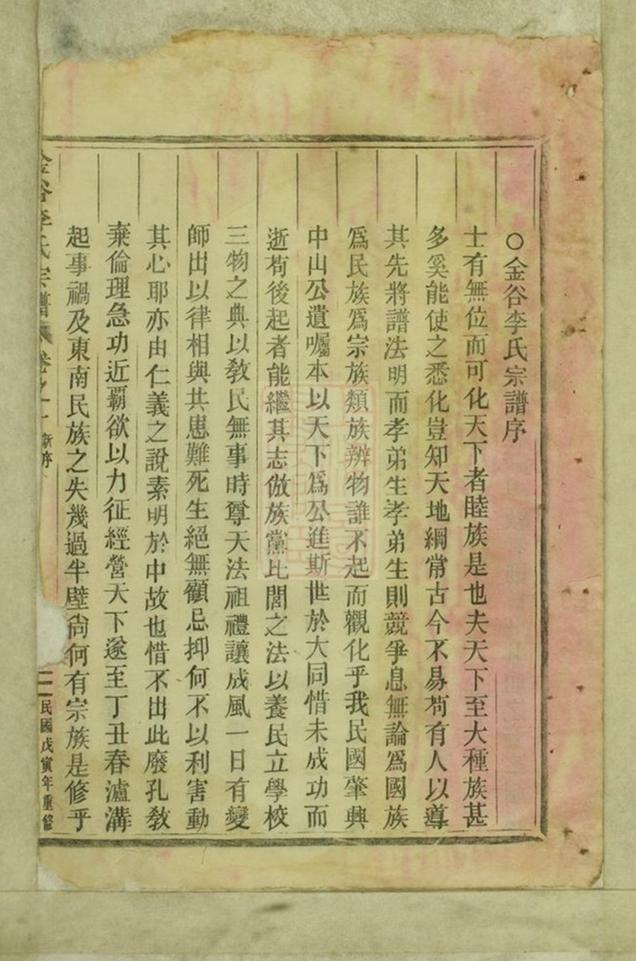 〇金谷李氏宗譜序
士有無位而可化天下者睦族是也夫天下至大種族甚
多奚能使之悉化豈知天地綱常古今不易苟有人以導
其先將譜法明而孝弟生孝弟生則競爭息無論爲國族
爲民族爲宗族類族辨物誰不起而觀化乎我民國肇興
中山公遺囑本以天下爲公進斯世於大同惜未成功而
逝苟後起者能繼其志倣族黨比閭之法以養民立學校
三物之典以敎民無事時尊天法祖禮讓成風一日有變
師出以律相與共患難死生絕無顧忌抑何不以利害動
其心耶亦由仁義之說素明於中故也惜不出此廢孔敎
棄倫理急功近覇欲以力征經營天下遂至丁丑春瀘溝
起事禍及東南民族之失幾過半壁尙何有宗族是修乎
金谷李氏宗譜 卷之一 新序 一 民國戊寅年重修